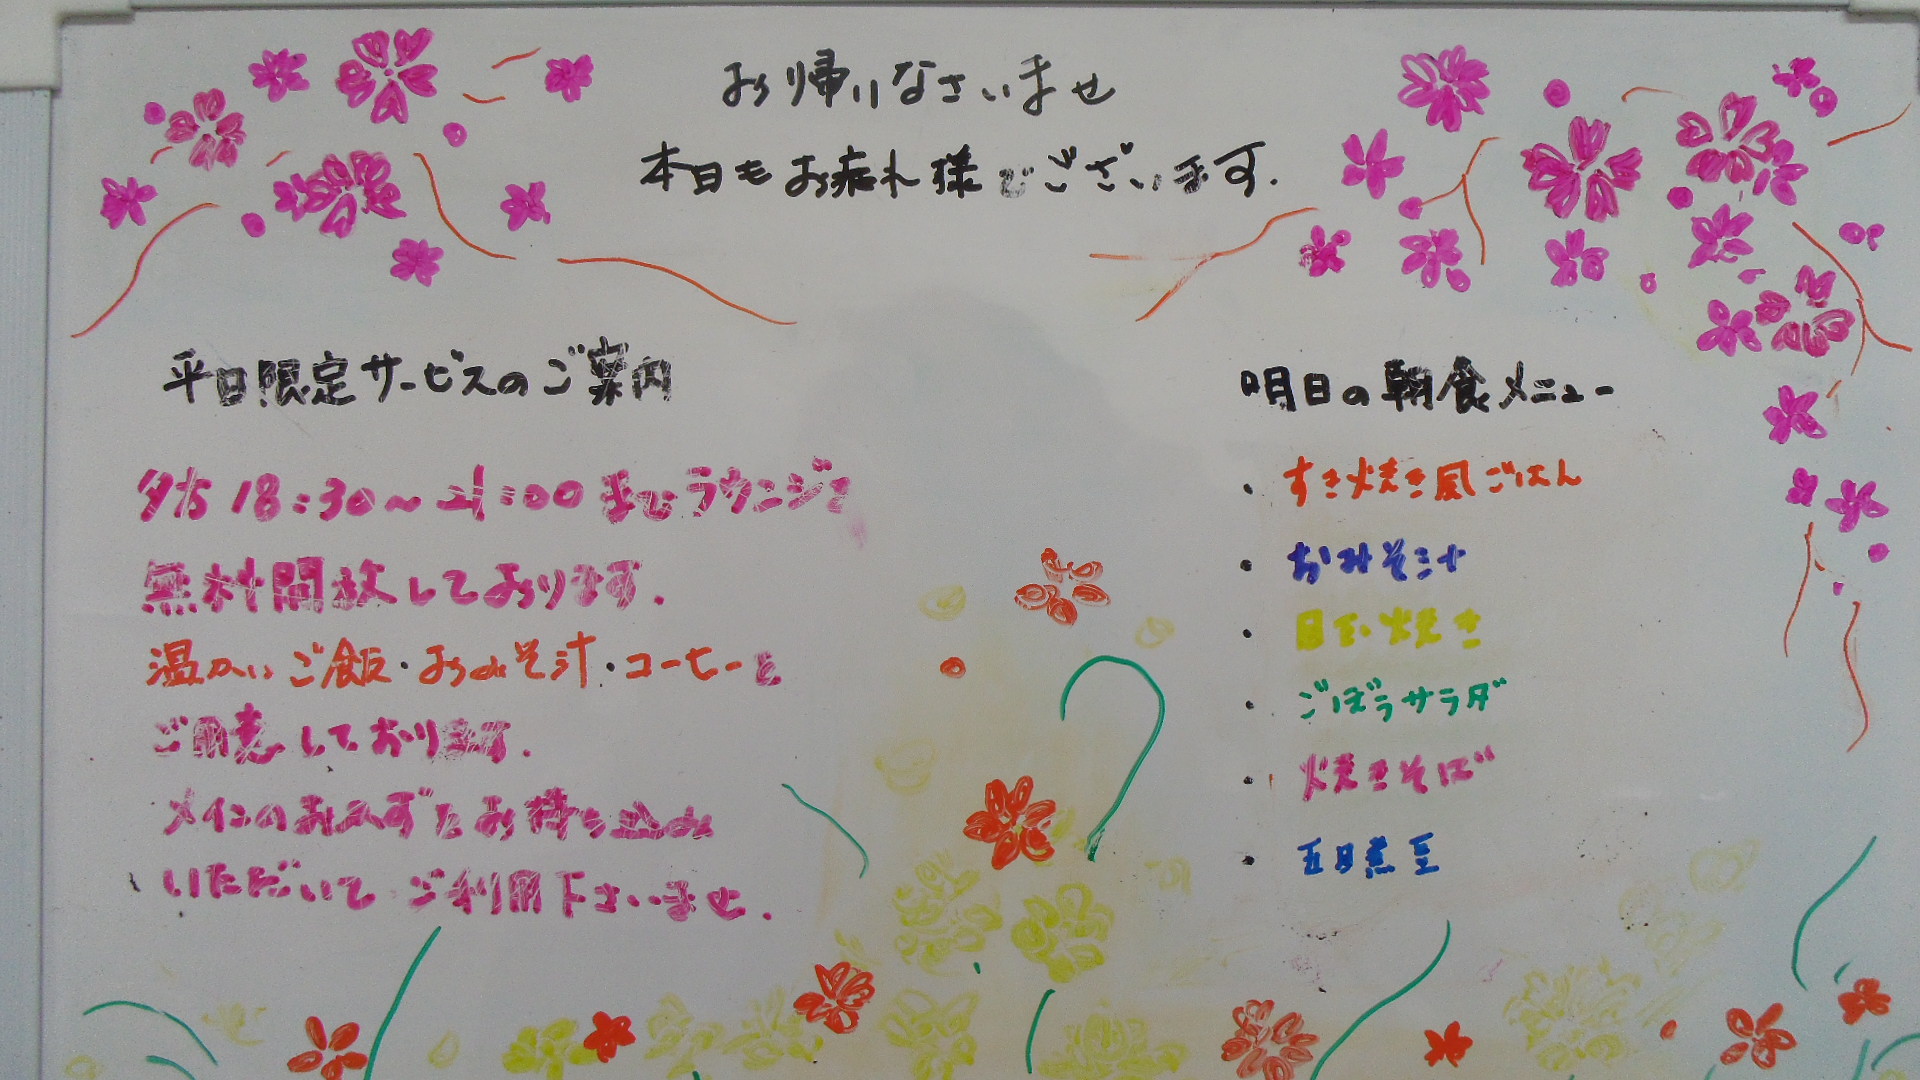 お帰りなさいませ
本日もお疲れ様でございます.
平日限定サービスのご案内
夕方 18:30〜21:00までラウンジを
無料開放しております.
温かいご飯・おみそ汁・コーヒーを
ご用意しております.
メインのおかずをお持ち込み
いただいて ご利用下さいませ.
明日の朝食メニュー
・すき焼き風ごはん
・おみそ汁
・目玉焼き
・ごぼうサラダ
・焼きそば
・五目煮豆